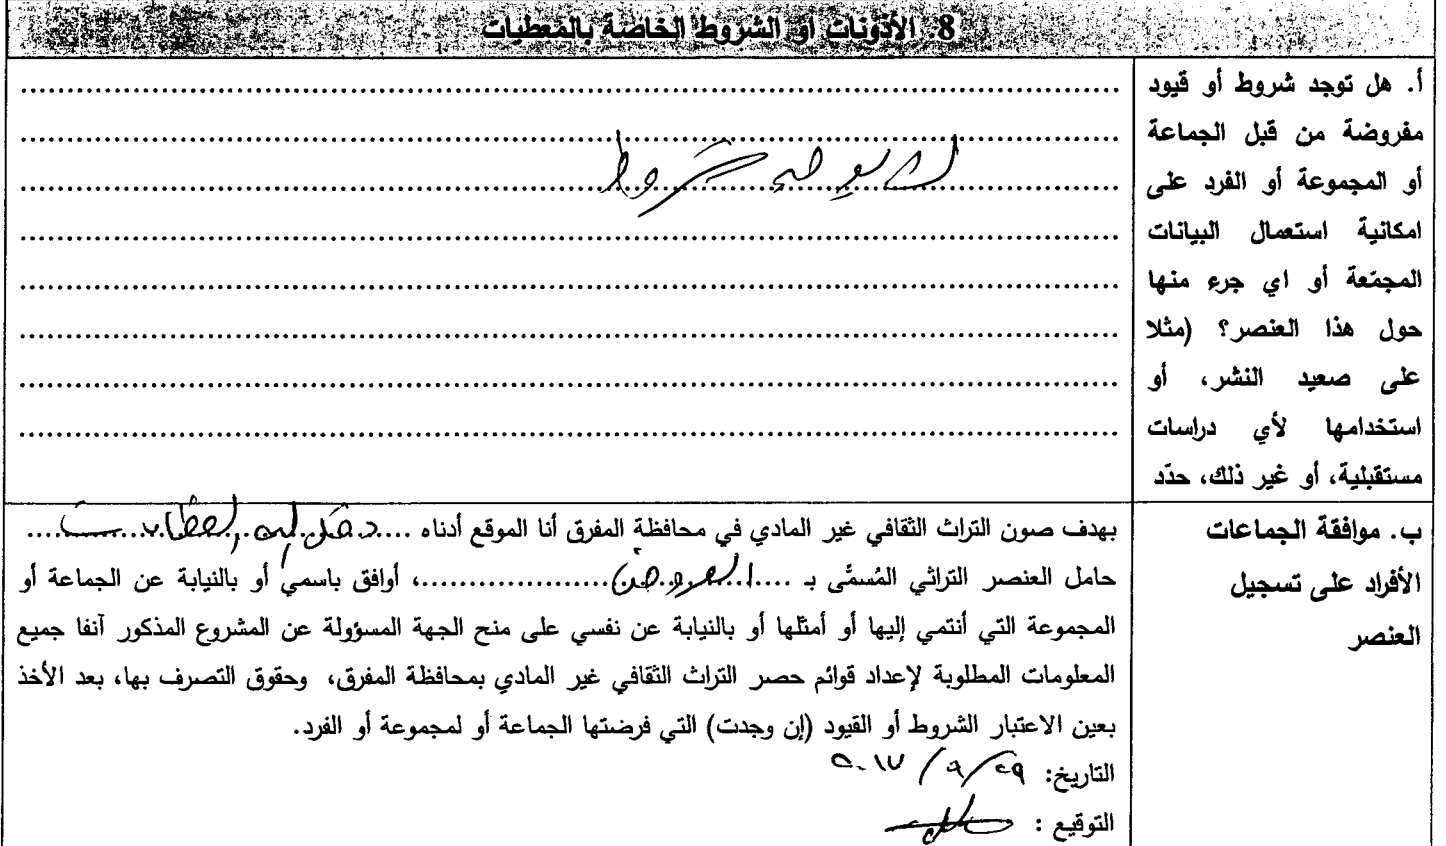 8. الأذونات أو الشروط الخاصة بالمعطيات
أ. هل توجد شروط أو قيود
مفروضة من قبل الجماعة
أو المجموعة أو الفرد على
امكانية استعمال البيانات
المجمّعة أو اي جرء منها
حول هذا العنصر؟ (مثلا
على صعيد النشر، أو
استخدامها لأي دراسات
مستقبلية، أو غير ذلك، حدّد
لا يوجد شروط
ب. موافقة الجماعات
الأفراد على تسجيل
العنصر
بهدف صون التراث الثقافي غير المادي في محافظة المفرق أنا الموقع أدناه ....
حامل العنصر التراثي المُسمَّى بـ ....، أوافق باسمي أو بالنيابة عن الجماعة أو
المجموعة التي أنتمي إليها أو أمثلها أو بالنيابة عن نفسي على منح الجهة المسؤولة عن المشروع المذكور آنفا جميع
المعلومات المطلوبة لإعداد قوائم حصر التراث الثقافي غير المادي بمحافظة المفرق، وحقوق التصرف بها، بعد الأخذ
بعين الاعتبار الشروط أو القيود (إن وجدت) التي فرضتها الجماعة أو لمجموعة أو الفرد.
التاريخ: ٢٩/٩/٢٠١٧
التوقيع :